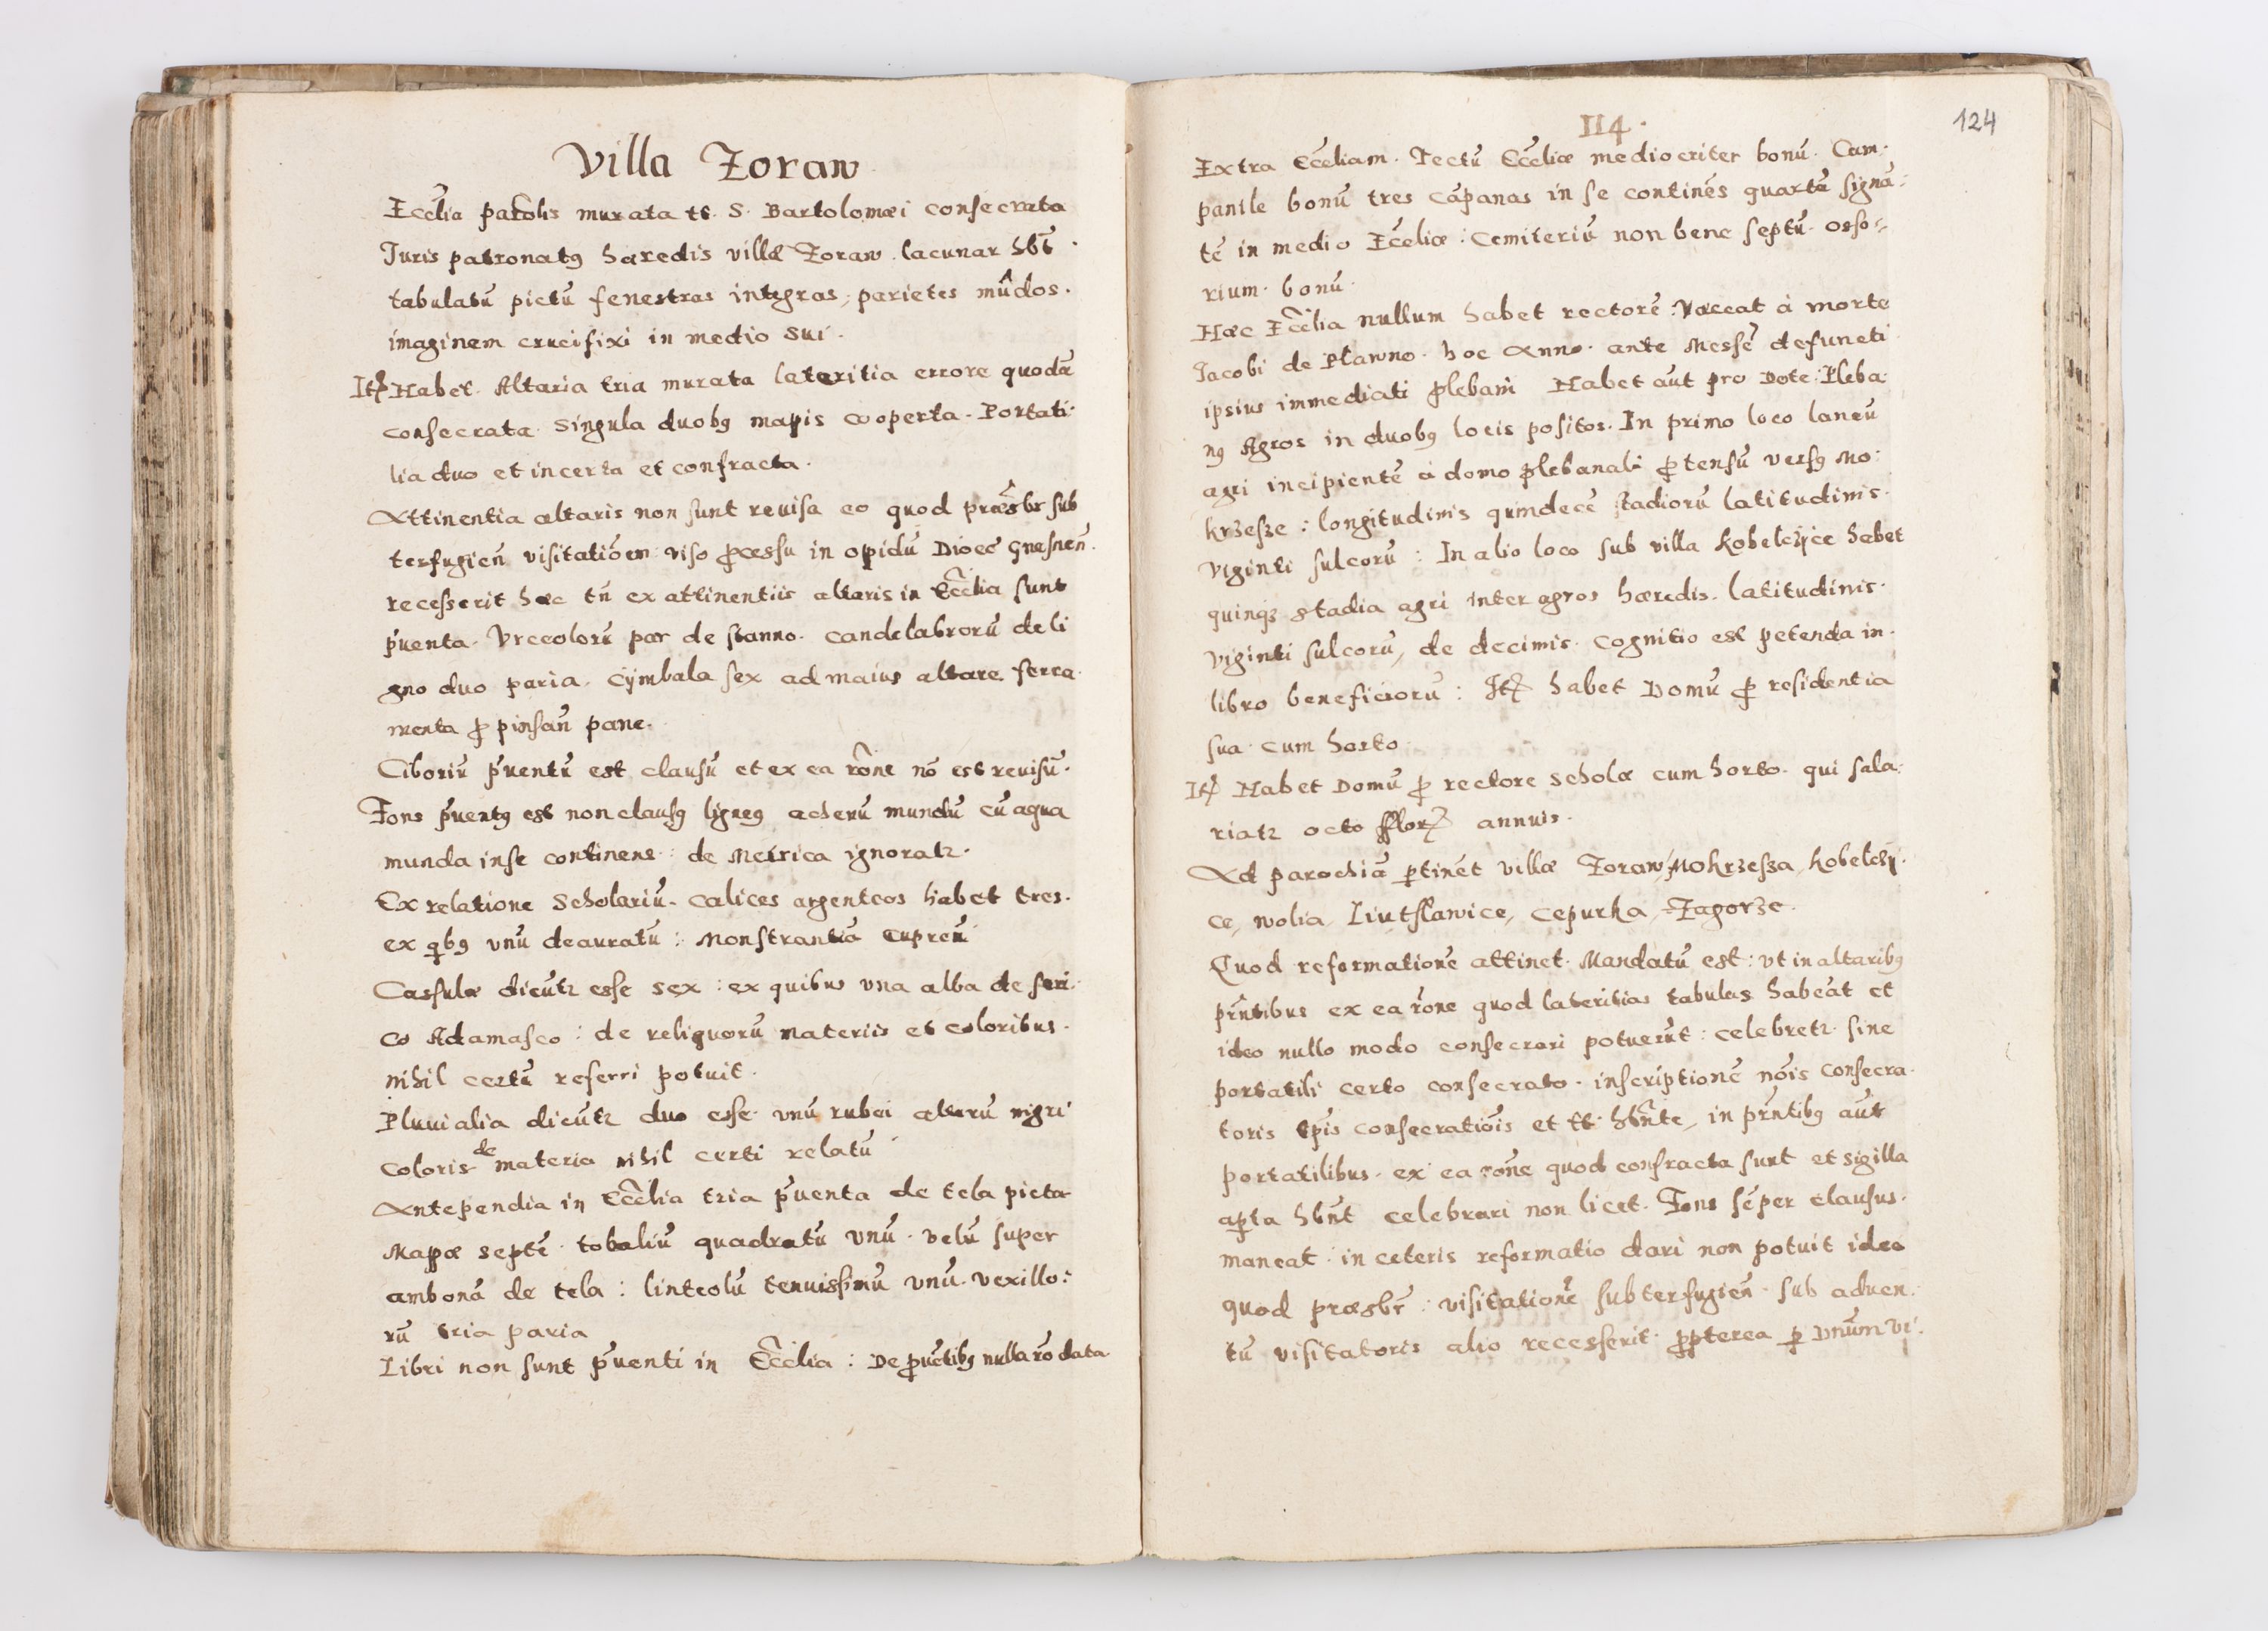 Villa Zoraw
Eccl̃ia parol̃is murata tt. S. Bartolomæi consecrata
Juris patronatꝰ hæredis villæ Zoraw. lacunar hb̃t
tabulatũ pictũ fenestras integras, parietes mũdos.
imaginem crucifixi in medio sui.
Itẽ Habet. Altaria tria murata lateritia errore quodã
consecrata. Singula duobꝰ mapis cooperta. Portati:
lia duo et incerta et confracta.
Attinentia altaris non sunt reuisa eo quod præsb̃r sub
terfugien̄ visitatiõem viso ꝓcessu in opidũ Dioec̃ Gnesnen̄.
recesserit hæc tñ ex attinentiis altaris in Eccl̃ia sunt
p̃uenta. Vrceolorũ par de stanno. candelabrorũ de li
gno duo paria. Cÿmbala sex ad maius altare. ferra:
menta ꝓ pinsan̄ pane.
Ciboriũ p̃uentũ est clausũ et ex ea rõne nõ est reuisũ.
Fons p̃uentꝰ est non clausꝰ ligneꝰ acherũ mundũ cũ aqua
munda in se continens: de Metrica ignoratr.
Ex relatione Scholariũ. calices argenteos habet tres.
ex qbꝰ vnũ deauratũ: Monstrantiã cupreũ
Cassulæ dicũtr esse sex: ex quibus vna alba de seri:
co Adamasco: de reliquorũ materiis et coloribus.
nihil certũ referri potuit.
Pluuialia dicũtr duo esse. vnũ rubei alterũ nigri
coloris de materia nihil certi relatũ
Antependia in Eccl̃ia tria p̃uenta de tela picta
Mappæ septẽ. tobaliũ quadratũ vnũ. velũ super
ambonã de tela: linteolũ tenuissimũ vnũ. vexillo:
rũ tria paria
Libri non sunt p̃uenti in Eccl̃ia: De ꝓuẽtibꝰ nulla rõ data
114.
124
Extra Eccl̃iam. Tectũ Eccl̃iæ mediocriter bonũ. Cam:
panile bonũ tres cãpanas in se continẽs quartã signã:
tẽ in medio Eccl̃iæ: Cemiteriũ non bene septũ. Osso:
rium. bonũ.
Hæc Eccl̃ia nullum habet rectorẽ: Vaccat à morte
Jacobi de Pławno. hoc Anno. ante Messẽ defuncti
ipsius immediati plebani Habet aũt pro Dote: Pleba:
nꝰ Agros in duobꝰ locis positos. In primo loco laneũ
agri incipientẽ à domo plebanali ꝓtensũ versꝰ Mo:
krzesze: longitudinis quindecẽ stadiorũ latitudinis.
viginti sulcorũ: In alio loco sub villa Kobelczÿce habet
quinqꝫ stadia agri inter agros hæredis. latitudinis.
viginti sulcorũ, de decimis. cognitio est petenda in.
libro beneficiorũ: Itẽ habet Domũ ꝓ residentia
sua. cum horto.
Itẽ Habet Domũ ꝓ rectore scholæ cum horto. qui sala:
riatr octo fflorꝝ annuis.
Ad parochiã ꝑtinẽt villæ Zoraw, Mokrzesza, Kobelczÿ:
ce, wolia, Liutslawice, Cepurka, Zagorze.
Quod reformationẽ attinet. Mandatũ est: vt in altaribꝰ
pr̃ntibus ex ea rõne quod lateritias tabulas habeãt et
ideo nullo modo consecrari potuerũt: celebretr sine
portatili certo consecrato. inscriptionẽ nõis consecra:
toris tp̃is consecratiõis et tt. hb̃nte, in pr̃ntibꝰ aũt
portatilibus. ex ea rõne quod confracta sunt et sigilla
aꝑta hb̃nt celebrari non licet. Fons sẽper clausus.
maneat. in ceteris reformatio dari non potuit ideo
quod præsb̃r: visitationẽ subterfugien̄. sub aduen:
tũ visitatoris alio recesserit. ꝓpterea ꝑ Dnũm Vi: